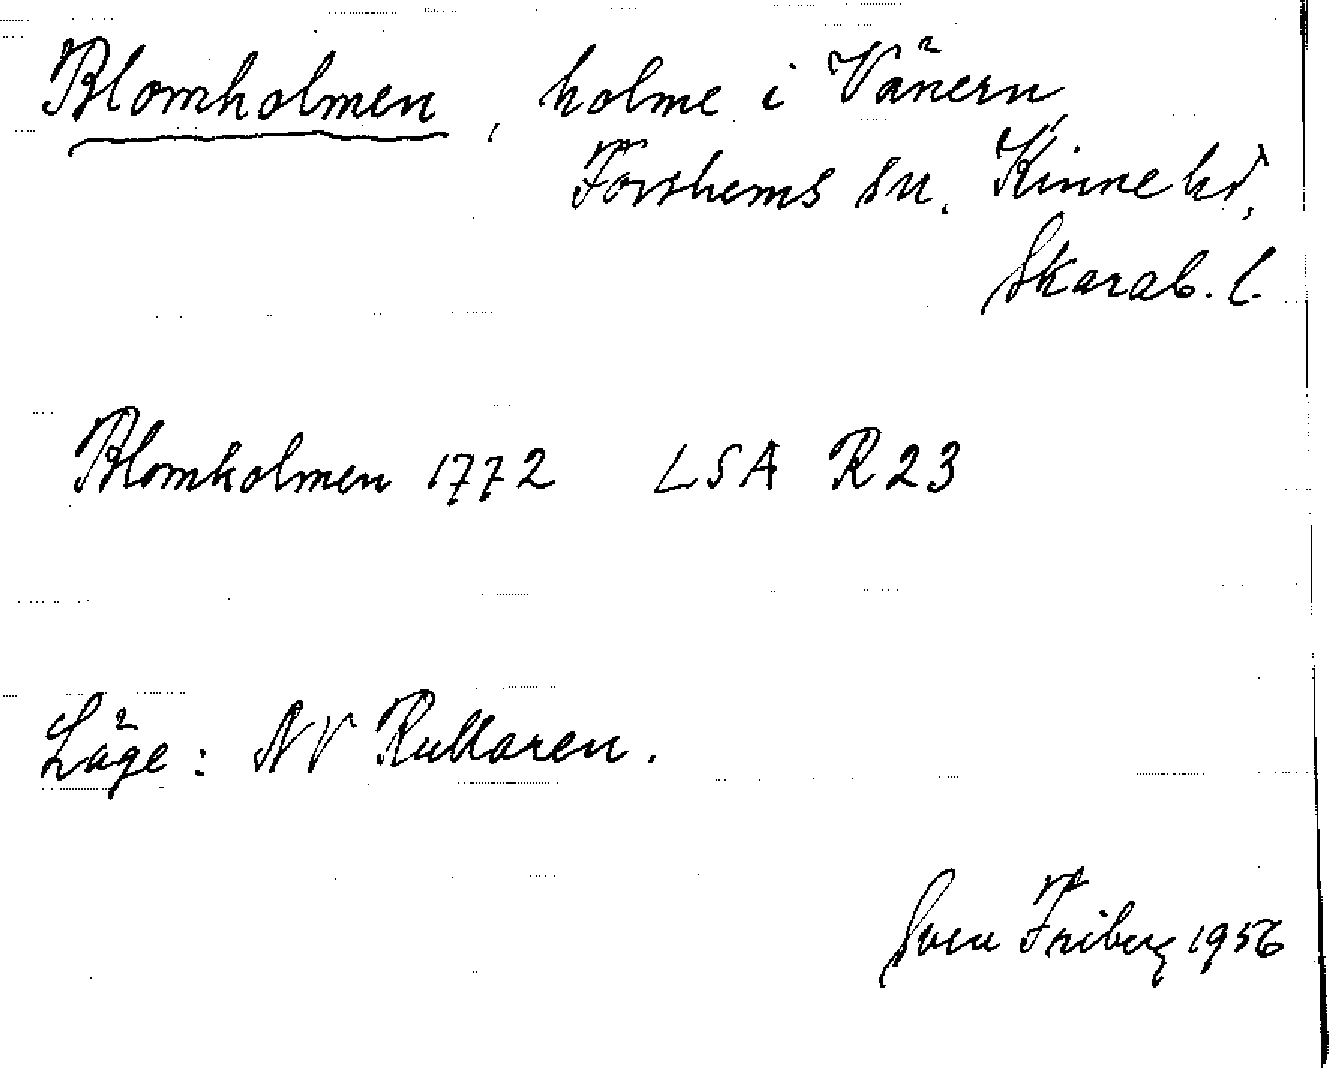 Blomholmen, holme i Vänern
Forshems sn. Kinne hd,
Skarab. l.
Blomholmen 1772 LSA R 23
Läge: NV Rullaren.
Sven Friberg 1956